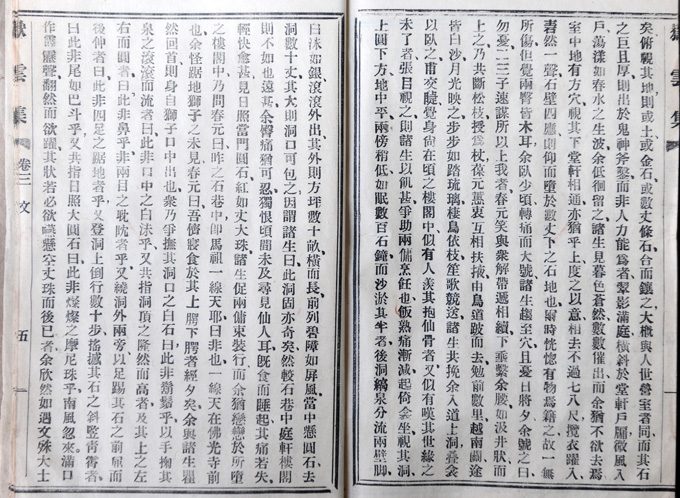 嶽雲集
矣俯視其地則或土或金石或數丈條石台而鑲之大槪與人世營至者同而其石
之巨且厚則出於鬼神斧鑿而非人力能爲者犂影滿庭橫斜於堂軒戶牖微風入
戶蕩漾如春水之生波余低徊留之諸生見暮色蒼然數數催出而余猶不欲去焉
室中地有方穴視其下堂軒相通亦猶乎上度之以意相去不過七八尺攬衣躍入
砉然一聲石壁四應則仰而墮於數丈下之石地也爾時恍惚有物爲籍之故一無
所傷但覺兩臀皆木耳余臥少頃轉痛而大號諸生趨至穴且憂曰將夕余號之曰
勿憂二三子速謀所以上我者春元笑與衆解帶遞相續下垂繫余腰如汲井狀而
上之乃共斷松枝授爲杖葆元蕙衷互相扶掖由鳥道跛而去勉前數里越南關途
皆白沙月光映之步步如踏琉璃棲鳥依枝笙歌競送諸生共挽余入道上洞疊衾
以臥之甫交睫覺身尙在頃之樓閣中似有人羨其抱仙骨者又似有嘆其世緣之
未了者張目視之則諸生以飢甚爭助兩傭烹飪也飯熟痛漸減起倚衾坐視其洞
上圓下方地中平兩傍稍低如眠數百石鐘而沙淤其半者後洞縞泉分流兩壁脚
曰沐如銀滾滾外出其外則方坪數十畝橫而長前列碧障如屏風當中懸圓石去
洞數十丈其大則洞口可包之因謂諸生曰此洞固亦奇矣然較石巷中庭軒樓閣
則不如也遠甚余臀痛猶可忍獨恨頃間未及尋見仙人耳旣食而睡起其痛若失
輕快愈甚見日照當門圓石紅如丈大珠諸生促兩傭束裝行而余猶戀戀於所墮
之樓閣中乃問春元曰昨之石巷中即馬祖一線天耶曰非也一線天在佛光寺前
也余怪踞地獅子之未見春元曰吾儕寢食於其上腭下腭者經夕矣余與諸生瞿
然回首則身自獅子口中出也衆乃爭撫其洞口之白石曰此非鬍鬚乎以手掬其
泉之滾滾而流者曰此非口中之白法乎又共指洞頂之隆然而高者及其上之左
右而圓者曰此非鼻乎非兩目之眈眈者乎又繞洞外兩旁以足踢其石之前屈而
後伸者曰此非四足之踞地者乎又登洞上倒行數十步搖撼其石之斜豎靑靑者
曰此非尾如巴斗乎又共指日照大圓石曰此非燦燦之摩尼珠乎南風忽來滿口
作霹靂聲翻然而欲躍其狀若必欲嚥懸空丈珠而後已者余欣然如遇文殊大士
嶽雲集 卷三 文 五